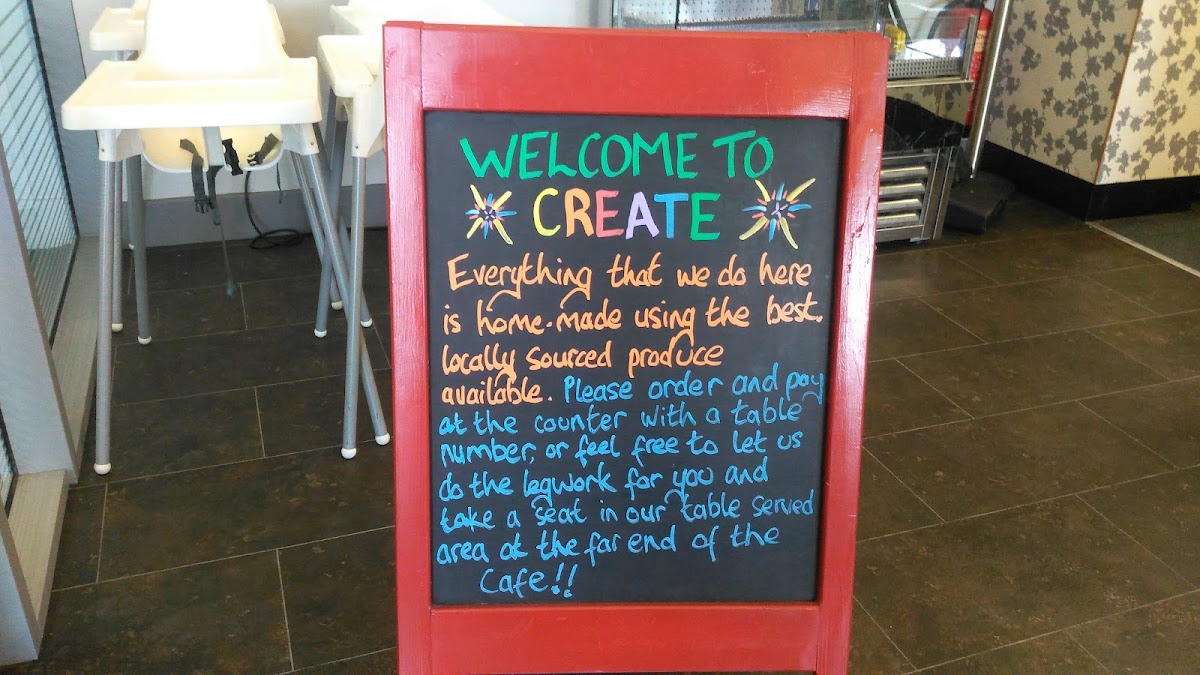 WELCOME TO
CREATE
Everything that we do here
is home-made using the best,
locally sourced produce
available. Please order and pay
at the counter with a table
number, or feel free to let us
do the legwork for you and
take a seat in our table served
area at the far end of the
Cafe!!